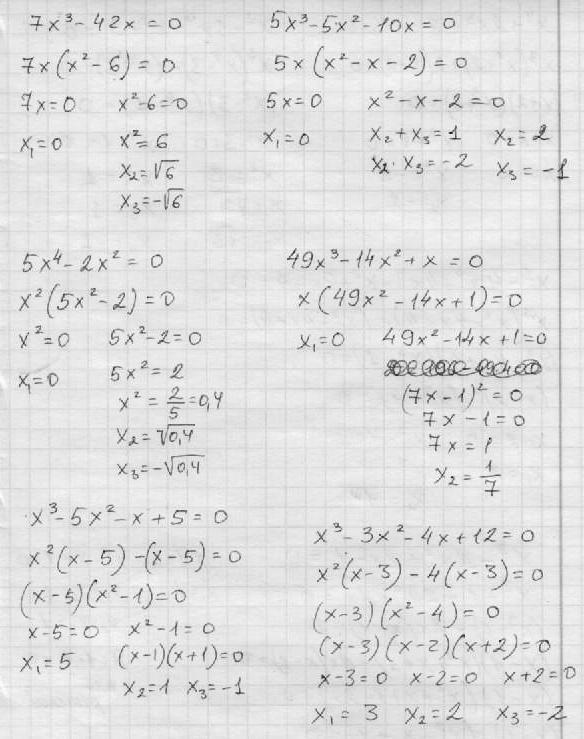 7x³-42x=0
7x(x²-6)=0
7x=0 x²-6=0
x₁=0 x²=6
x₂=√6
x₃=-√6
5x³-5x²-10x=0
5x(x²-x-2)=0
5x=0 x²-x-2=0
x₁=0 x₂+x₃=1 x₂=2
x₂·x₃=-2 x₃=-1
5x⁴-2x²=0
x²(5x²-2)=0
x²=0 5x²-2=0
x₁=0 5x²=2
x²=2/5=0,4
x₂=√0,4
x₃=-√0,4
49x³-14x²+x=0
x(49x²-14x+1)=0
x₁=0 49x²-14x+1=0
(7x-1)²=0
7x-1=0
7x=1
x₂=1/7
x³-5x²-x+5=0
x²(x-5)-(x-5)=0
(x-5)(x²-1)=0
x-5=0 x²-1=0
x₁=5 (x-1)(x+1)=0
x₂=1 x₃=-1
x³-3x²-4x+12=0
x²(x-3)-4(x-3)=0
(x-3)(x²-4)=0
(x-3)(x-2)(x+2)=0
x-3=0 x-2=0 x+2=0
x₁=3 x₂=2 x₃=-2